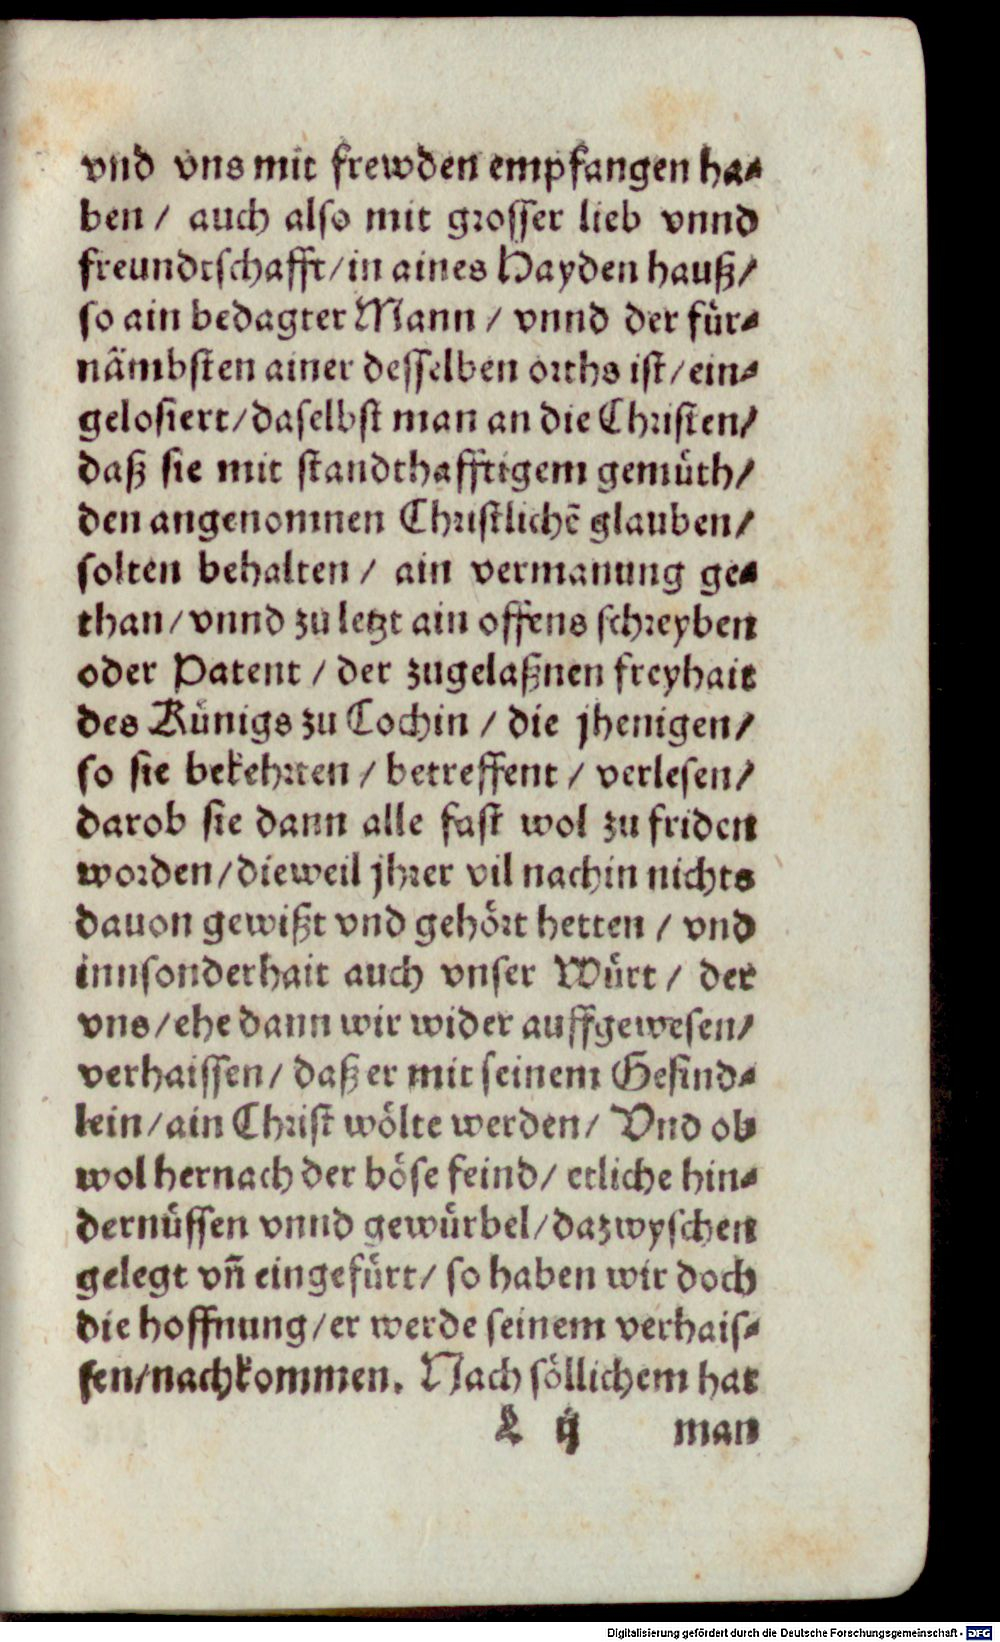 vnd vns mit frewden empfangen ha-
ben / auch also mit grosser lieb vnnd
freundtschafft / in aines Hayden hauß /
so ain bedagter Mann / vnnd der für-
nämbsten ainer desselben orths ist / ein-
gelosiert / daselbst man an die Christen /
daß sie mit standthafftigem gemüth /
den angenomnen Christlichẽ glauben /
solten behalten / ain vermanung ge-
than / vnnd zu letzt ain offens schreyben
oder Patent / der zugelaßnen freyhait
des Künigs zu Cochin / die jhenigen /
so sie bekehrten / betreffent / verlesen /
darob sie dann alle fast wol zu friden
worden / dieweil jhrer vil nachin nichts
dauon gewißt vnd gehört hetten / vnd
innsonderhait auch vnser Würt / der
vns / ehe dann wir wider auffgewesen /
verhaissen / daß er mit seinem Gesind-
lein / ain Christ wölte werden / Vnd ob
wol hernach der böse feind / etliche hin-
dernüssen vnnd gewürbel / dazwyschen
gelegt vñ eingefürt / so haben wir doch
die hoffnung / er werde seinem verhais-
sen / nachkommen. Nach söllichem hat
L ij man
Digitalisierung gefördert durch die Deutsche Forschungsgemeinschaft - DFG